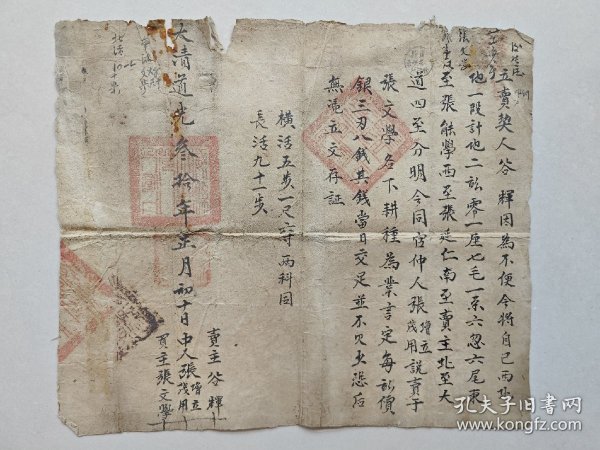 立賣契人谷 輝因為不便今將自己西北
地一段計地二畝零一厘七毛一系六忽六尾東
至張 能學西至張廷仁南至賣主北至大
道四至分明今同官仲人張增立茂用說賣于
張文學名下耕種為業言定每畝價
銀三刃八錢其錢當日交足並不欠少恐后
無憑立文存証
橫活五步一尺六寸 兩科同
長活九十一步
大清道光叁拾年 月初十日中人張增立茂用
賣主谷 輝
買主張文學
孔夫子旧书网
kongfz.com